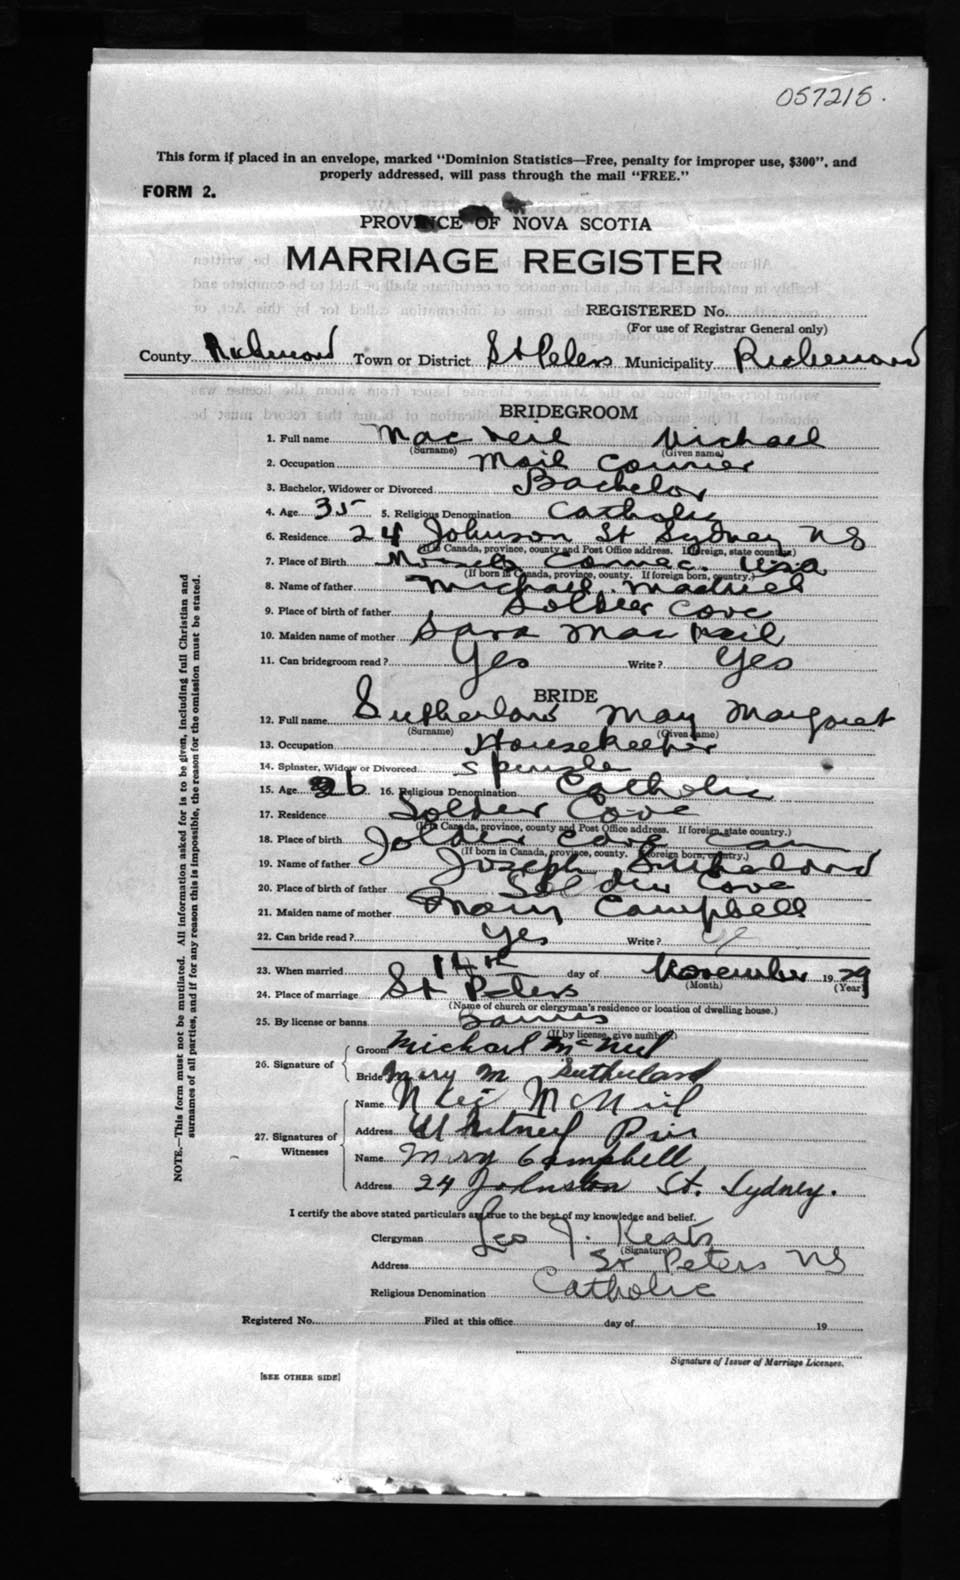 057215.
This form if placed in an envelope, marked "Dominion Statistics—Free, penalty for improper use, $300", and
properly addressed, will pass through the mail "FREE."
FORM 2.
PROVINCE OF NOVA SCOTIA
MARRIAGE REGISTER
REGISTERED No.
(For use of Registrar General only)
County Richmond Town or District St Peters Municipality Richmond
BRIDEGROOM
1. Full name Mac Neil Michael
(Surname) (Given name)
2. Occupation Mail Courier
3. Bachelor, Widower or Divorced Bachelor
4. Age 35 5. Religious Denomination Catholic
6. Residence 24 Johnson St Sydney NS
(If in Canada, province, county and Post Office address. If foreign, state country.)
7. Place of Birth Connec. USA
(If born in Canada, province, county. If foreign born, country.)
8. Name of father Michael
9. Place of birth of father Soldier Cove
10. Maiden name of mother Sara Mac Neil
11. Can bridegroom read? Yes Write? Yes
BRIDE
12. Full name Sutherland May Margaret
(Surname) (Given name)
13. Occupation Housekeeper
14. Spinster, Widow or Divorced
15. Age 26 16. Religious Denomination Catholic
17. Residence Soldier Cove
(If in Canada, province, county and Post Office address. If foreign, state country.)
18. Place of birth Soldier Cove Can
(If born in Canada, province, county. If foreign born, country.)
19. Name of father Joseph Sutherland
20. Place of birth of father Soldier Cove
21. Maiden name of mother Mary Campbell
22. Can bride read? Yes Write?
23. When married 14th day of November 1929
(Month) (Year)
24. Place of marriage St Peters
(Name of church or clergyman's residence or location of dwelling house.)
25. By license or banns Banns
(If by license, give author.)
26. Signature of
Groom Michael McNeil
Bride Mary M Sutherland
27. Signatures of Witnesses
Name McNeil
Address Whitney Pier
Name Mary Campbell
Address 24 Johnston St. Sydney.
I certify the above stated particulars are true to the best of my knowledge and belief.
Clergyman Leo J. Keats
(Signature)
Address St Peters NS
Religious Denomination Catholic
Registered No. Filed at this office day of 19
Signature of Issuer of Marriage Licenses.
[SEE OTHER SIDE]
NOTE.—This form must not be mutilated. All information asked for is to be given, including full Christian and
surnames of all parties, and if for any reason this is impossible, the reason for the omission must be stated.